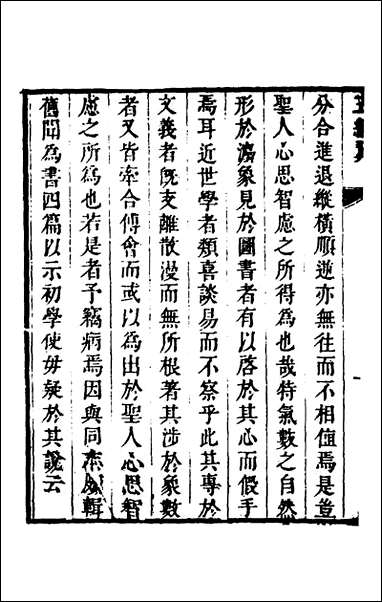 分合進退縱橫順逆亦無往而不相值焉是豈
聖人心思智慮之所得為也哉特氣數之自然
形於法象見於圖書者有以啓於其心而假手
焉耳近世學者類喜談易而不察乎此其專於
文義者既支離散漫而無所根著其涉於象數
者又皆牽合傅會而或以為出於聖人心思智
慮之所為也若是者予竊病焉因與同志輯
舊聞為書四篇以示初學使毋疑於其說云